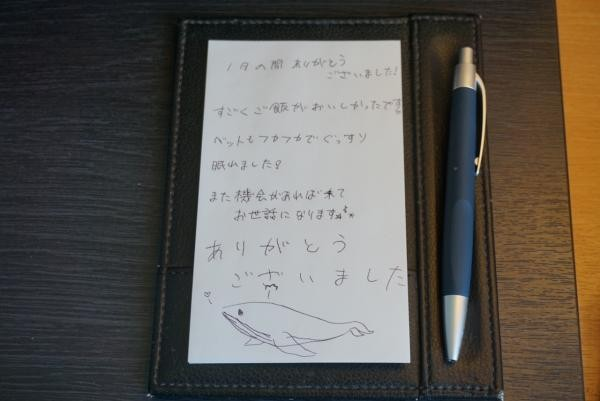 1夕の間ありがとう
ございました!
すごくご飯がおいしかったです!
ベットもフカフカでぐっすり
眠れました!
また機会があれば来て
お世話になります
ありがとう
ございました